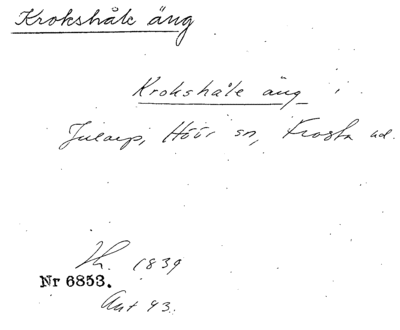 Krokshåle äng
Krokshåle äng i
Jularp, Höör sn, Frosta hd.
1839
Nr 6853.
Akt 43.